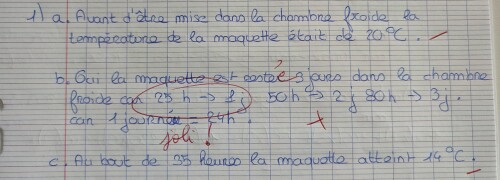 1) a. Avant d'être mise dans la chambre froide la
température de la maquette était de 20°C.
b. Oui la maquette est resté é 3 jours dans la chambre
froide car 25 h → 1j 50h → 2j 80h → 3j.
car 1 journée = 24h
joli !
c. Au bout de 35 heures la maquette atteint 14°C.